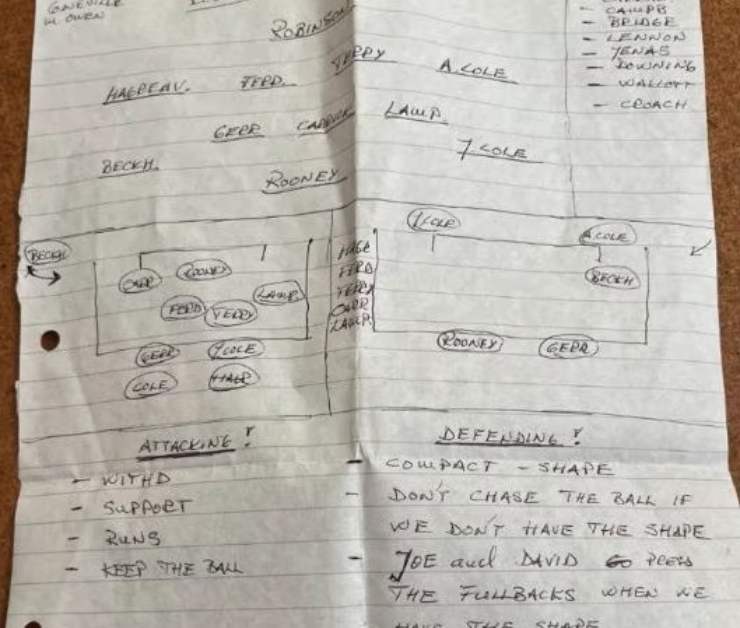 M. OWEN
ROBINSON
- BRIDGE
- LENNON
- JENAS
- DOWNING
- WALCOTT
- CROACH
HAGREAV. FERD. TERRY A.COLE
GERR CARRICK LAMP.
BECKH. J.COLE
ROONEY
J.COLE
A.COLE
BECKH
BECKH
CARR ROONEY LAMP.
FERD TERRY
GERR J COLE
COLE HARG
HARG
FERD
TERRY
CARR
LAMP.
ROONEY GERR
ATTACKING!
- WITHD
- SUPPORT
- RUNS
- KEEP THE BALL
DEFENDING!
- COMPACT - SHAPE
- DON'T CHASE THE BALL IF
WE DON'T HAVE THE SHAPE
- JOE and DAVID GO PRESS
THE FULLBACKS WHEN WE
HAVE THE SHAPE